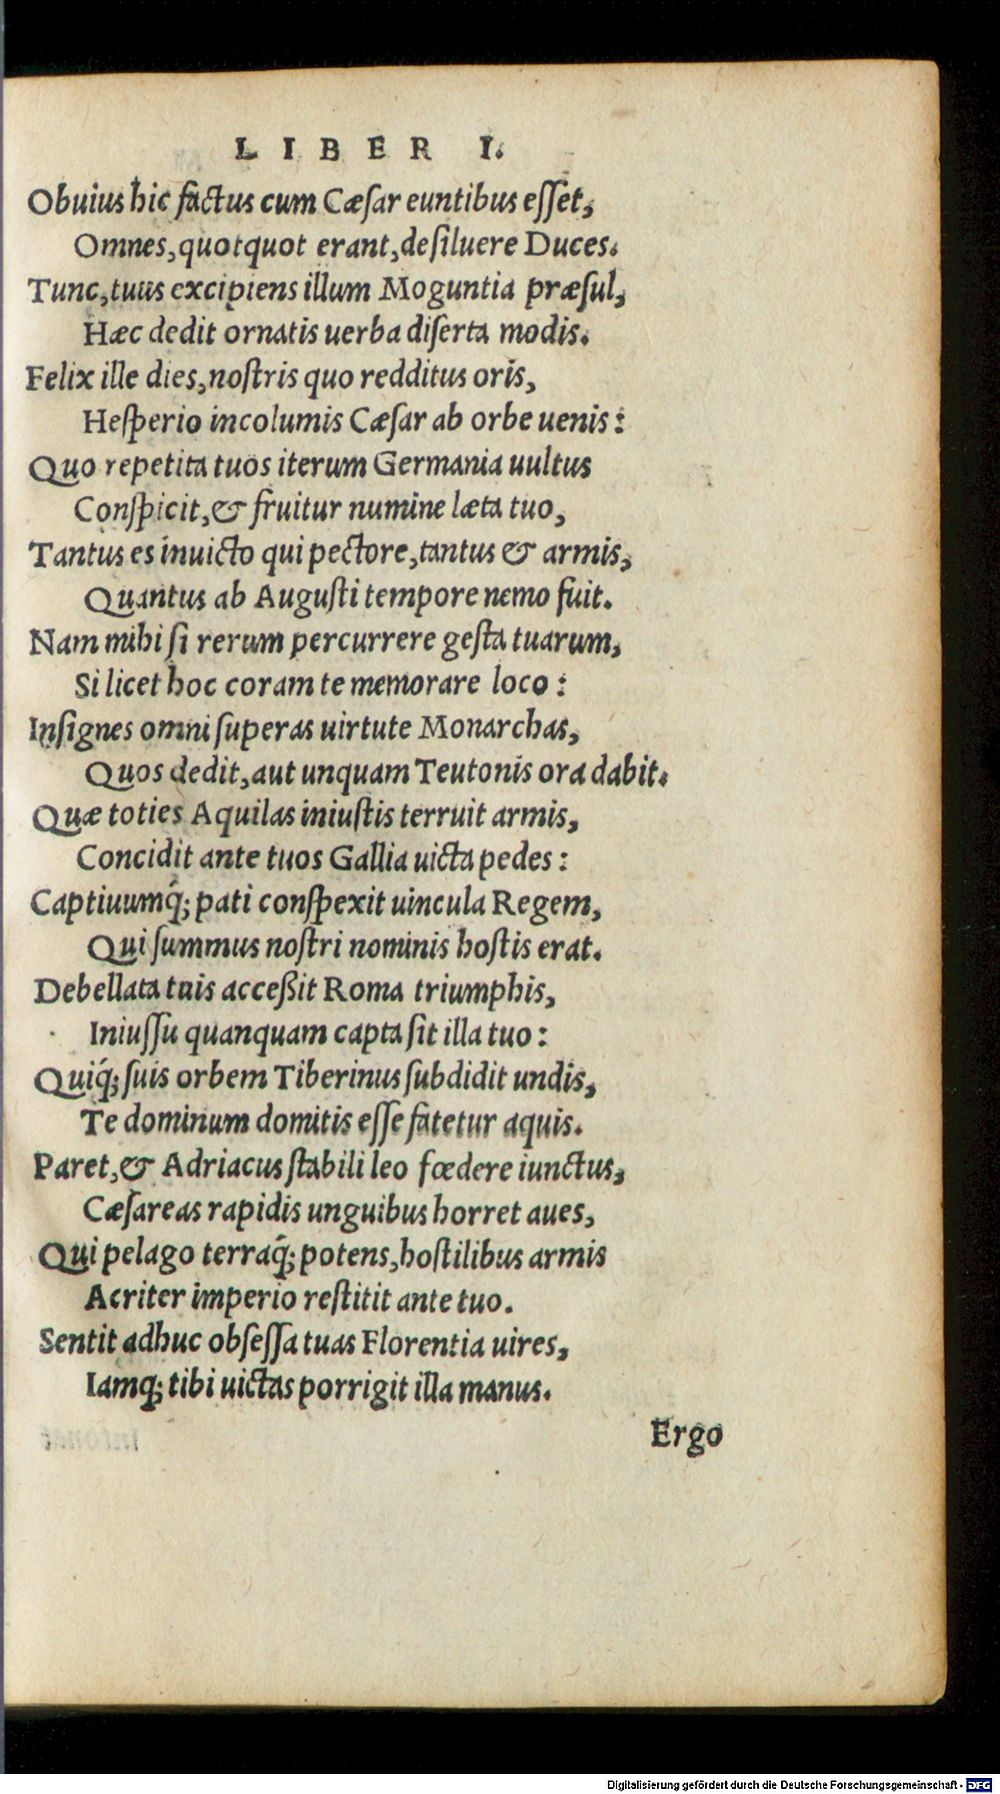 LIBER I.
Obuius hic factus cum Cæſar euntibus eſſet,
Omnes, quotquot erant, deſiluere Duces.
Tunc, tuus excipiens illum Moguntia præſul,
Hæc dedit ornatis uerba diſerta modis.
Felix ille dies, noſtris quo redditus oris,
Heſperio incolumis Cæſar ab orbe uenis:
Quo repetita tuos iterum Germania uultus
Conſpicit, & fruitur numine læta tuo,
Tantus es inuicto qui pectore, tantus & armis,
Quantus ab Auguſti tempore nemo fuit.
Nam mihi ſi rerum percurrere geſta tuarum,
Si licet hoc coram te memorare loco:
Inſignes omni ſuperas uirtute Monarchas,
Quos dedit, aut unquam Teutonis ora dabit.
Quæ toties Aquilas iniuſtis terruit armis,
Concidit ante tuos Gallia uicta pedes:
Captiuumq́; pati conſpexit uincula Regem,
Qui ſummus noſtri nominis hoſtis erat.
Debellata tuis acceßit Roma triumphis,
Iniuſſu quanquam capta ſit illa tuo:
Quiq́; ſuis orbem Tiberinus ſubdidit undis,
Te dominum domitis eſſe fatetur aquis.
Paret, & Adriacus ſtabili leo fœdere iunctus,
Cæſareas rapidis unguibus horret aues,
Qui pelago terraq́; potens, hoſtilibus armis
Acriter imperio reſtitit ante tuo.
Sentit adhuc obſeſſa tuas Florentia uires,
Iamq; tibi uictas porrigit illa manus.
Ergo
Digitalisierung gefördert durch die Deutsche Forschungsgemeinschaft - DFG